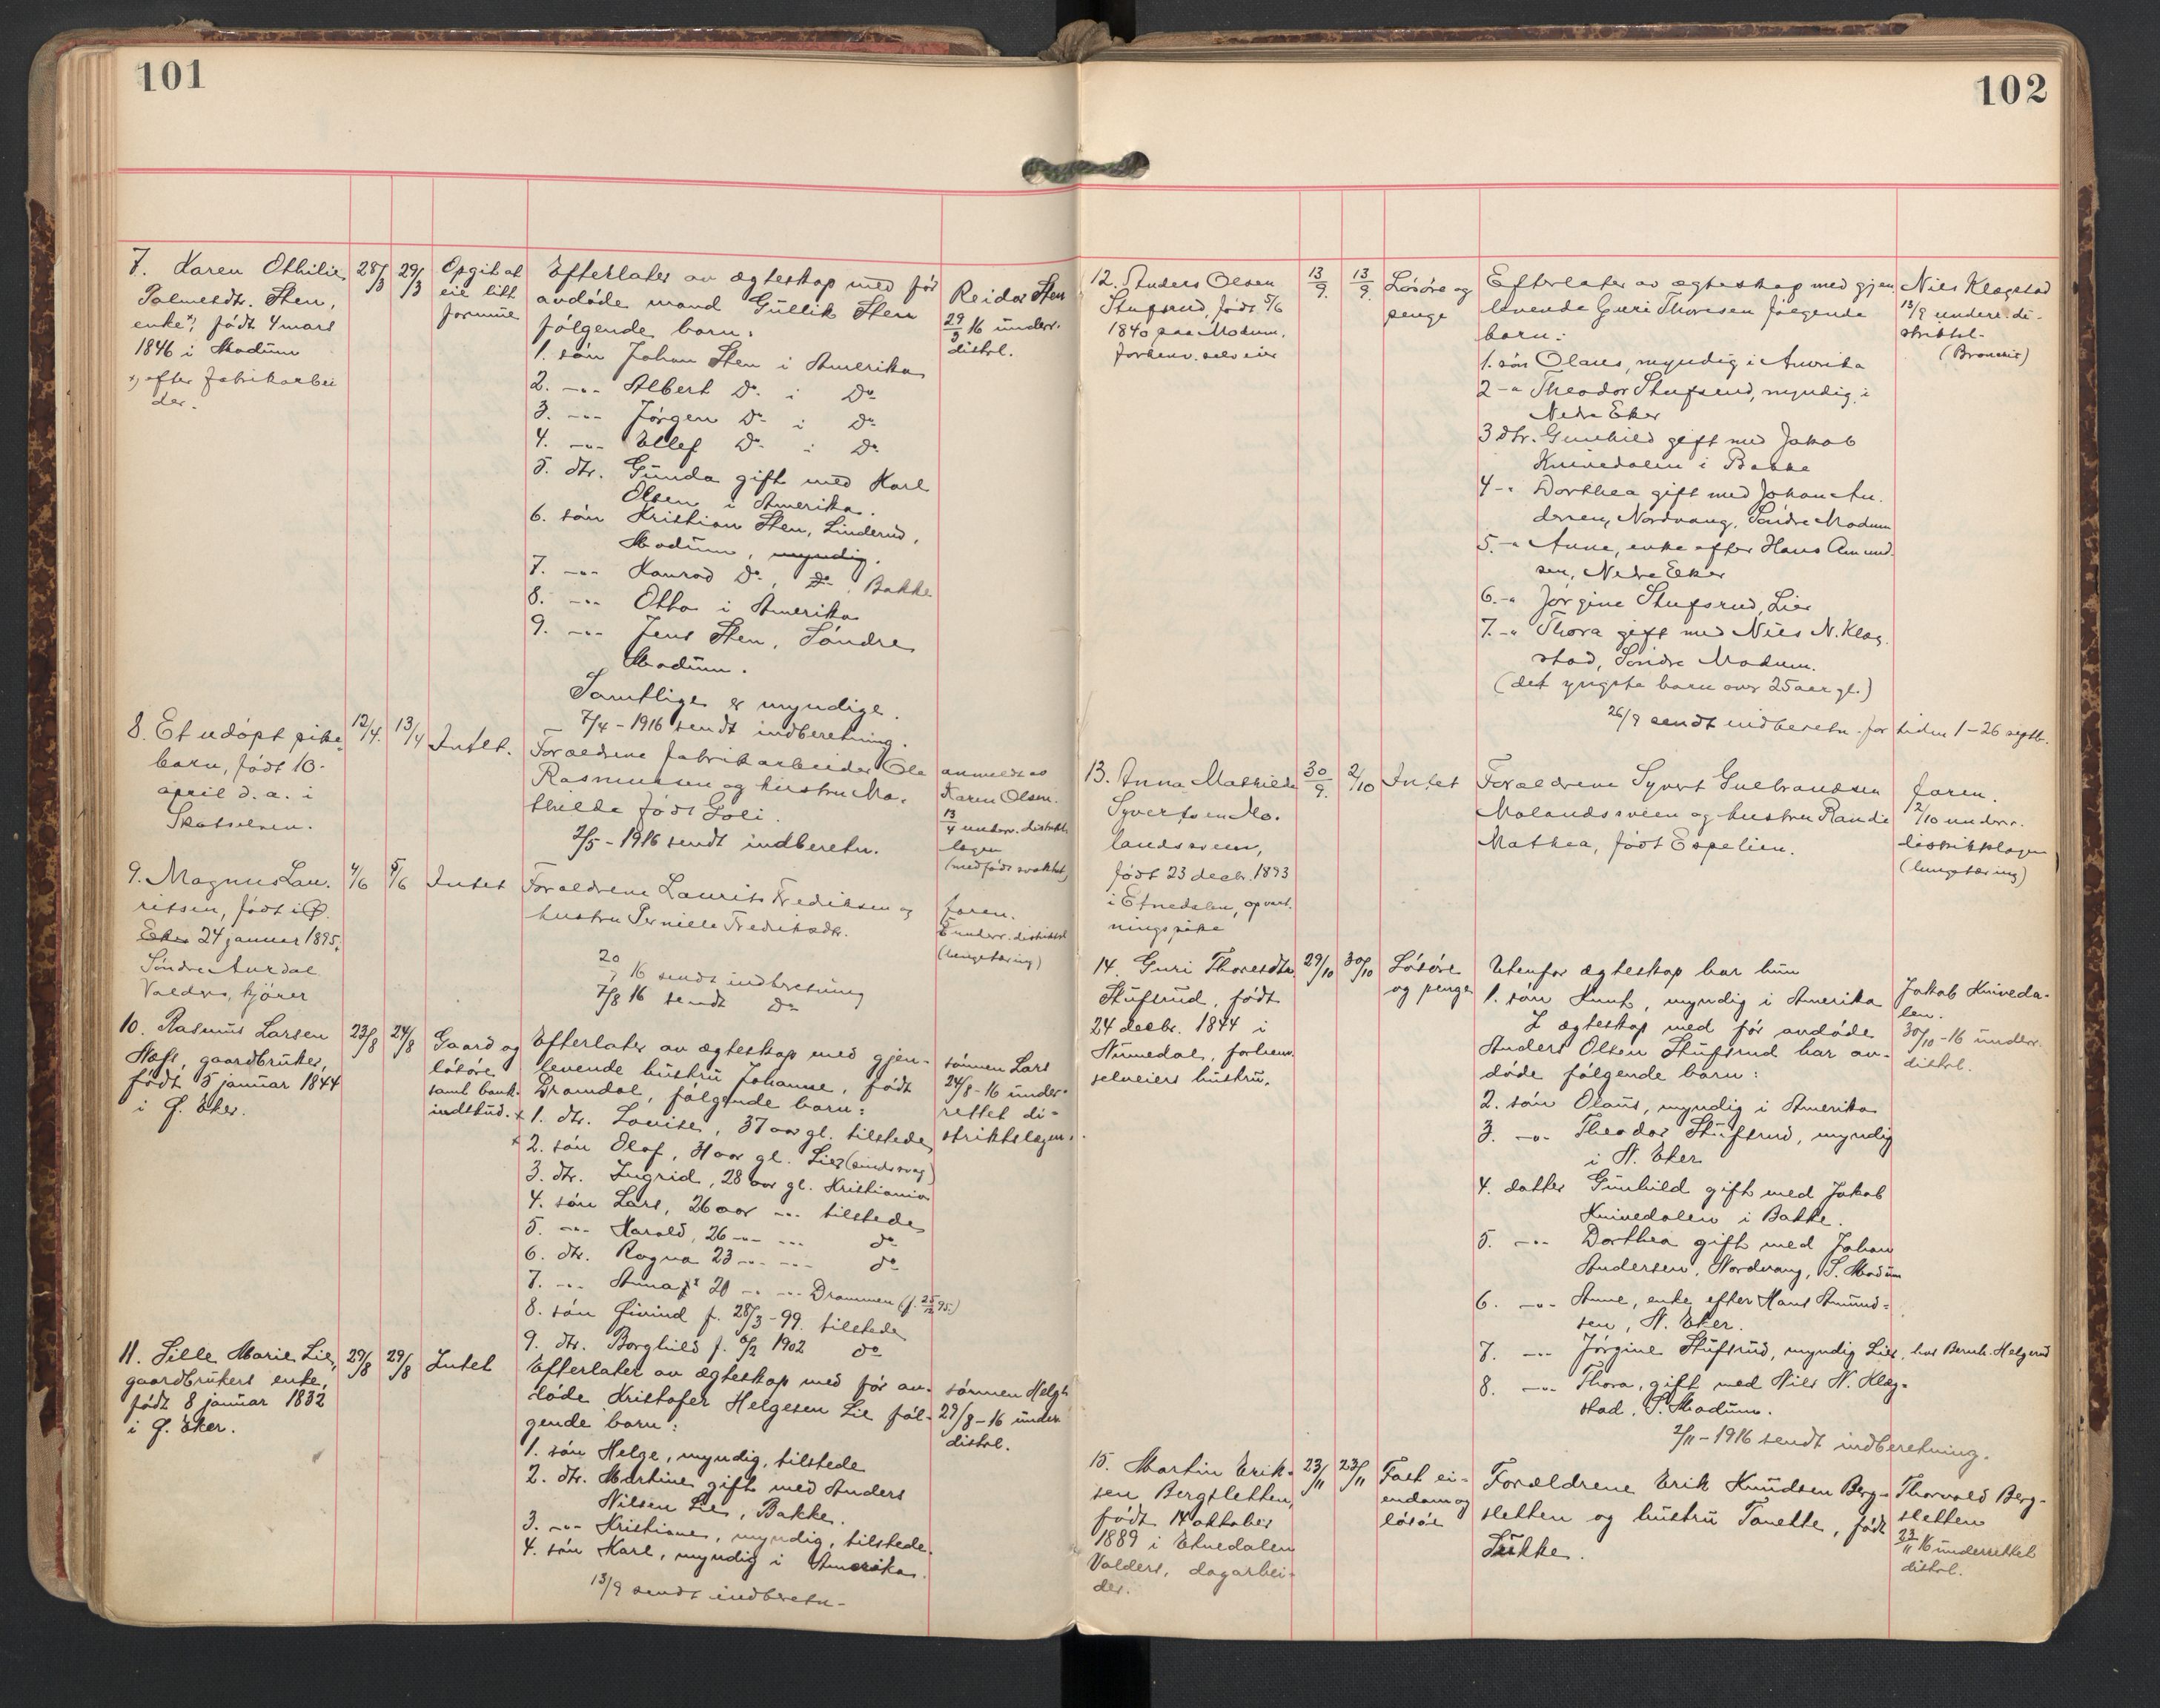 101
7. Karen Othilie
Palmesdtr. Sten,
enke x), født 4 mars
1846 i Modum
x) efter fabrikarbei
der.
28/3
29/3
Opgit at
eie litt
formue
Efterlater av ægteskap med før
avdøde mand Gullik Sten
følgende barn:
1. søn Johan Sten i Amerika
2. -"- Albert Do. i Do
3. -"- Jørgen Do. i Do
4. -"- Ellef Do. i Do
5. dtr. Gunda gift med Karl
Olsen i Amerika.
6. søn Kristian Sten, Linderud,
Modum, myndig.
7. -"- Konrad Do, Do. Bakke
8. -"- Otto i Amerika
9. -"- Jens Sten, Søndre
Modum.
Samtlige er myndige.
7/4 - 1916 sendt indberetning.
Reidar Sten
29/3 16 underr.
distrl.
8. Et udøpt pike
barn, født 10-
april d. a. i
Skotselven.
12/4.
13/4
Intet.
Forældrene fabrikarbeider Ole
Rasmussen og hustru Ma-
thilde født Goli.
2/5 - 1916 sendt indberetn.
anmeldt av
Karen Olsen.
13/4 underr. distrikts
lægen
(medfødt svakhet)
9. Magnus Lau-
ritsen, født i Ø.
Eker 24 januar 1895,
Søndre Aurdal
Valdres, kjører
4/6
5/6
Intet
Forældrene Laurits Fredriksen og
hustru Pernille Fredriksdtr.
20/7 16 sendt indberetning
7/8 16 sendt Do
faren.
5 underr. distriktsl
(lungetæring)
10. Rasmus Larsen
Næss, gaardbruker,
født 5 januar 1844
i Ø. Eker.
23/8
24/8
Gaard og
løsøre
samt bank-
indskud.
Efterlater av ægteskap med gjen-
levende hustru Johanne, født
Dramdal, følgende barn:
x 1. dtr. Lovise, 37 aar gl. tilstede
x 2. søn Olaf, 31 aar gl. Lier (sindssvag)
3. dtr. Ingrid, 28 aar gl. Kristiania
4. søn Lars, 26 aar -"- tilstede
5. -"- Harald, 26 -"- -"- do
6. dtr. Ragna 23 -"- -"- do
7. -"- Anna 20 -"- -"- Drammen (f. 25/12 95.)
8. søn Øivind f. 28/3 - 99. tilstede
9. dtr. Borghild f. 6/2 1902 do
sønnen Lars
24/8 - 16 under-
rettet di-
striktslægen.
11. Sille Marie Lie,
gaardbrukers enke,
født 8 januar 1832
i Ø. Eker.
29/8
29/8
Intet
Efterlater av ægteskap med før av-
døde Kristofer Helgesen Lie føl-
gende barn:
1. søn Helge, myndig, tilstede
2. dtr. Martine gift med Anders
Nilsen Lie, Bakke.
3. -"- Kristiane, myndig, tilstede.
4. søn Karl, myndig i Amerika.
13/9 sendt indberetn-
sønnen Helge
29/8 - 16 underr
distrl.
102
12. Anders Olsen
Stufsrud, født 5/6
1840 paa Modum.
forhenv. selveier
13/9.
13/9.
Løsøre og
penge
Efterlater av ægteskap med gjen-
levende Guri Thoresen følgende
barn:
1. søn Olaus, myndig i Amerika
2 -" Theodor Stufsrud, myndig i
Nedre Eker
3 dtr. Gunhild gift med Jakob
Knivedalen i Bakke
4 -" Dorthea gift med Johan An-
dersen, Nordvang, Søndre Modum
5. -" Anne, enke efter Hans Amund-
sen, Nedre Eker
6. -" Jørgine Stufsrud, Lier
7. -" Thora gift med Nils N. Klæg-
stad, Søndre Modum.
(det yngste barn over 25 aar gl.)
26/9 sendt indberetn. for tiden 1-26 septb.
Nils Klægstad
13/9 underr. di-
striktsl-
(Bronkit)
13. Anna Mathilde
Syversen Mo-
landsveen,
født 23 decbr. 1893
i Etnedalen, opvart-
ningspike
30/9.
2/10
Intet
Forældrene Syvert Gulbrandsen
Molandsveen og hustru Randi
Mathea, født Espelien.
faren.
2/10 underr.
distriktslægen
(lungetæring)
14. Guri Thoresdtr.
Stufsrud, født
24 decbr. 1844 i
Numedal, forhenv.
selveiers hustru.
29/10
30/10
Løsøre
og penge
Utenfor ægteskap har hun
1. søn Knut, myndig i Amerika
I ægteskap med før avdøde
Anders Olsen Stufsrud har av-
døde følgende barn:
2. søn Olaus, myndig i Amerika
3. -"- Theodor Stufsrud, myndig
i N. Eker
4. datter Gunhild gift med Jakob
Knivedalen i Bakke.
5. -"- Dorthea gift med Johan
Andersen, Nordvang, S. Modum
6. -"- Anne, enke efter Hans Amund-
sen, N. Eker.
7. -"- Jørgine Stufsrud, myndig Lier, hos Bernh. Helgerud
8. -"- Thora, gift med Nils N. Klæg-
stad, S. Modum.
2/11 - 1916 sendt indberetning.
Jakob Kniveda-
len.
30/10 - 16 underr.
distrl.
15. Martin Erik-
sen Bergsletten,
født 14 oktober
1889 i Etnedalen
Valders, dagarbei-
der.
23/11
23/11
Fast ei-
endom og
løsøre
Forældrene Erik Knudsen Berg-
sletten og hustru Tonette, født
Lukke.
Thorvald Berg-
sletten
23/11 16 underrettet
distrl.